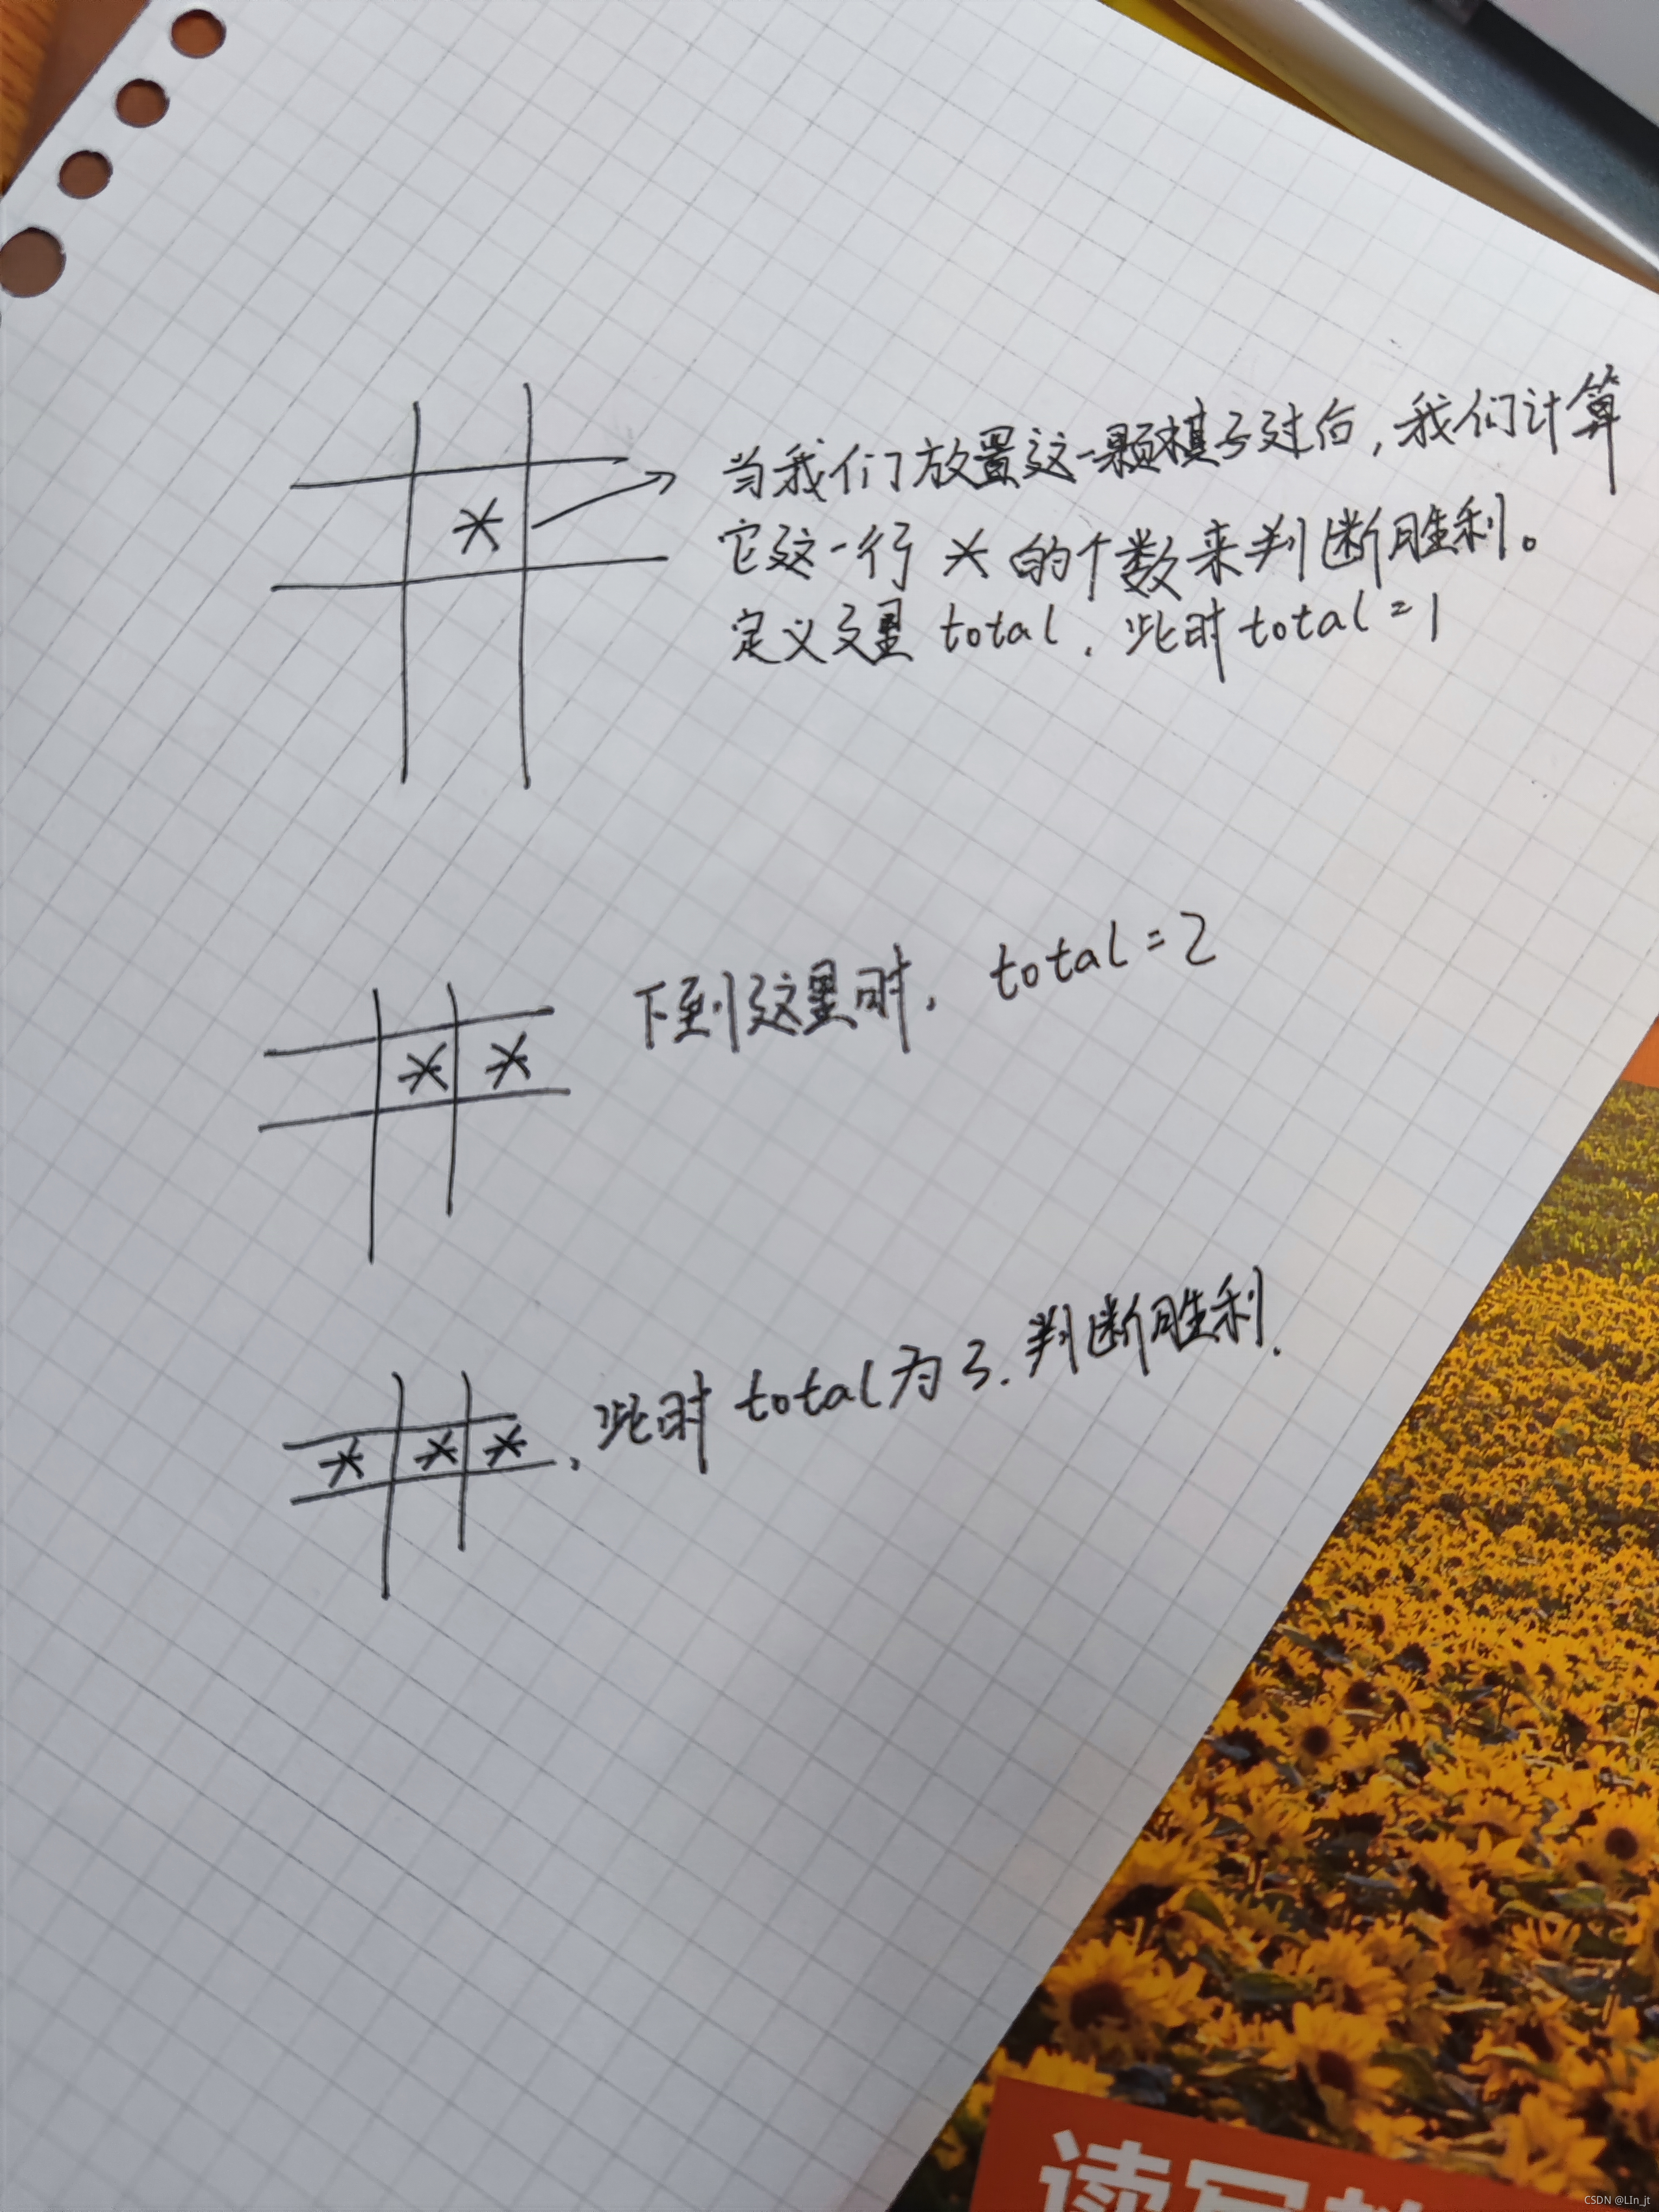 当我们放置这一颗棋子过后,我们计算
*
它这一行 * 的个数来判断胜利。
定义变量 total. 此时total=1
下到这里时. total=2
* *
* * *
. 此时 total为3. 判断胜利.
读写
CSDN @LIn_jt